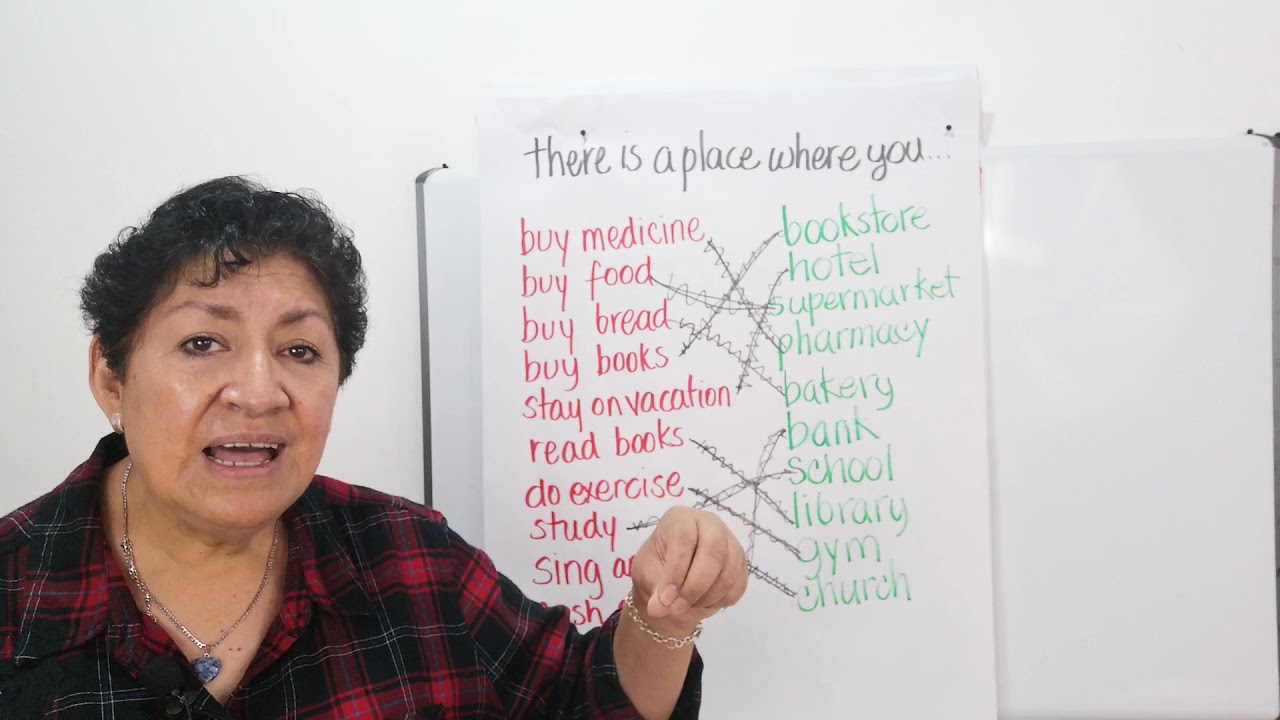 there is a place where you...
buy medicine
buy food
buy bread
buy books
stay on vacation
read books
do exercise
study
sing
bookstore
hotel
supermarket
pharmacy
bakery
bank
school
library
gym
church